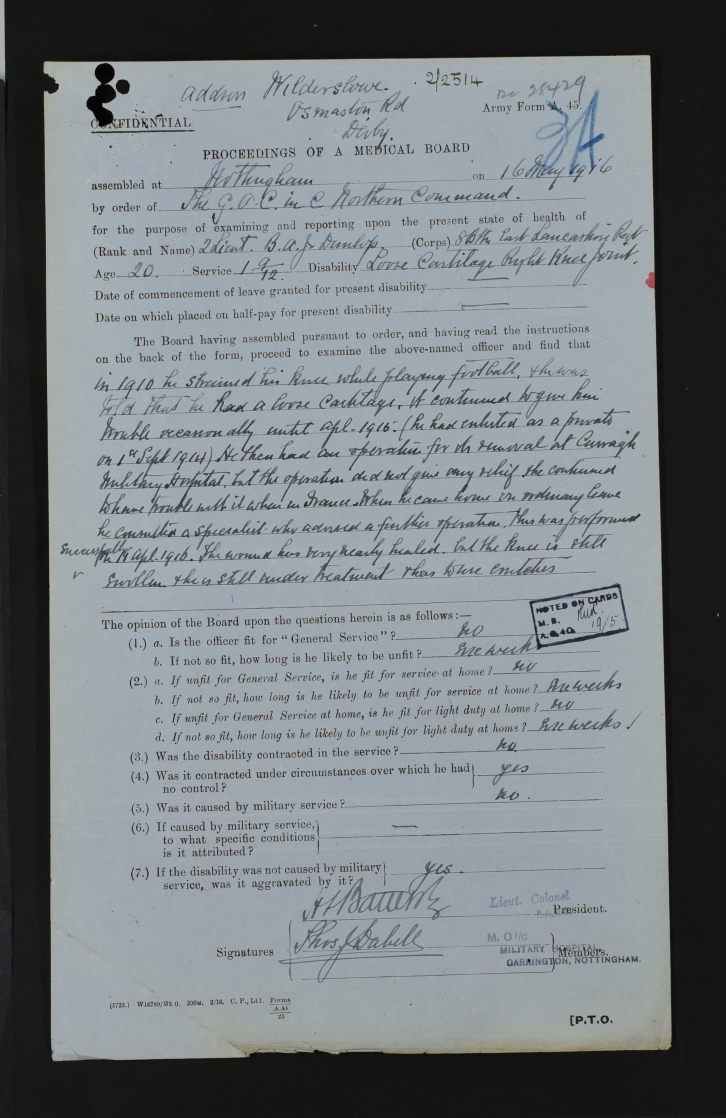 Address Wilderslowe. 2/2514
Osmaston Rd no 28429
Derby.
CONFIDENTIAL
Army Form A. 45.
3A
PROCEEDINGS OF A MEDICAL BOARD
assembled at Nottingham on 16 May 1916
by order of The G.O.C. in C Northern Command.
for the purpose of examining and reporting upon the present state of health of
(Rank and Name) 2 Lieut. B. A. J. Dunlop. (Corps) 8 Bth East Lancashire Regt
Age 20. Service 1 9/12. Disability Loose Cartilage Right Knee Joint.
Date of commencement of leave granted for present disability
Date on which placed on half-pay for present disability —
The Board having assembled pursuant to order, and having read the instructions
on the back of the form, proceed to examine the above-named officer and find that
in 1910 he strained his knee while playing football, & he was
told that he had a loose cartilage. It continued to give him
trouble occasionally until Apl. 1915. (he had enlisted as a private
on 1st Sept 1914) He then had an operation for its removal at Curragh
Military Hospital, but the operation did not give any relief & he continued
to have trouble with it when in France. When he came home on ordinary leave
he consulted a specialist who advised a further operation. This was performed
successfully on 18 Apl 1916. The wound has very nearly healed. but the knee is still
swollen & he is still under treatment & has to use crutches
The opinion of the Board upon the questions herein is as follows:—
NOTED ON CARDS
M. S.
A.G. 4c. 19/5
(1.) a. Is the officer fit for "General Service"? no
b. If not so fit, how long is he likely to be unfit? Six weeks
(2.) a. If unfit for General Service, is he fit for service at home? no
b. If not so fit, how long is he likely to be unfit for service at home? Six weeks
c. If unfit for General Service at home, is he fit for light duty at home? no
d. If not so fit, how long is he likely to be unfit for light duty at home? Six weeks /
(3.) Was the disability contracted in the service? no
(4.) Was it contracted under circumstances over which he had yes
no control?
(5.) Was it caused by military service? no.
(6.) If caused by military service,
to what specific conditions —
is it attributed?
(7.) If the disability was not caused by military yes.
service, was it aggravated by it?
Lieut. Colonel
President.
Signatures Thos J Dabell Members.
M. O i/c
MILITARY HOSPITAL,
CARRINGTON, NOTTINGHAM.
(5725.) W16789/M2 0. 200M. 2/16. C. P., Ltd. Forms
A.45
25
[P.T.O.